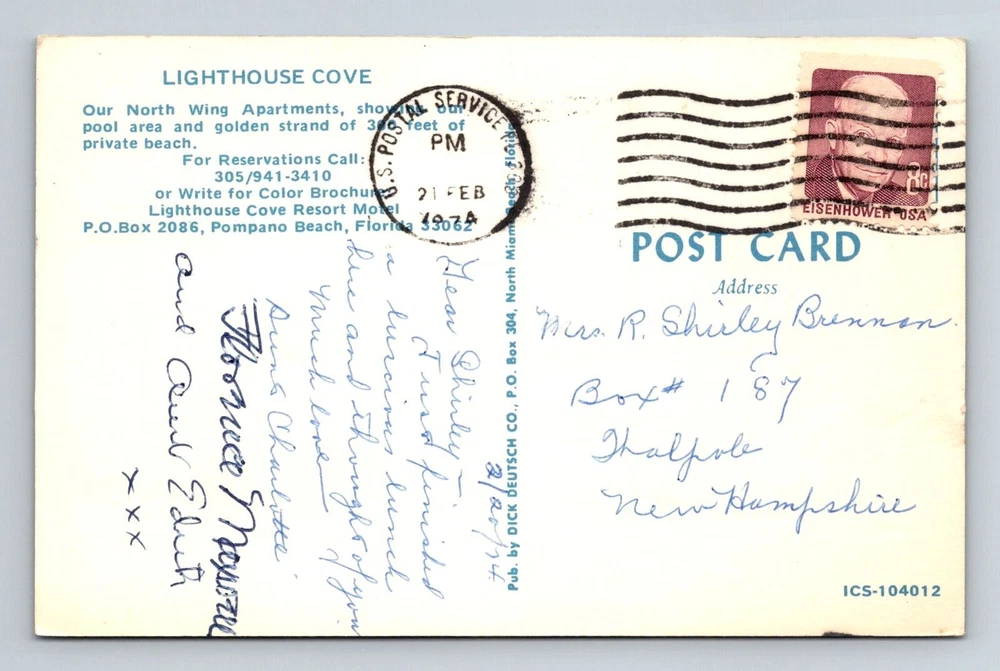 LIGHTHOUSE COVE
Our North Wing Apartments, showing our
pool area and golden strand of 300 feet of
private beach.
For Reservations Call:
305/941-3410
or Write for Color Brochure
Lighthouse Cove Resort Motel
P.O.Box 2086, Pompano Beach, Florida 33062
U.S. POSTAL SERVICE
PM
21 FEB
1974
8¢
EISENHOWER USA
POST CARD
Address
Mrs. R. Shirley Brennan.
Box # 187
Walpole
New Hampshire
ICS-104012
Pub. by DICK DEUTSCH CO., P.O. Box 304, North Miami Beach, Florida
2/20/74
Dear Shirley -
Just finished
a luscious lunch
here and thought of you
Much love -
Aunt Charlotte
Florence
and Aunt Edith
x x x